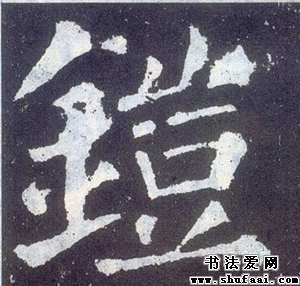 鎧
书法爱网
www.shufaai.com